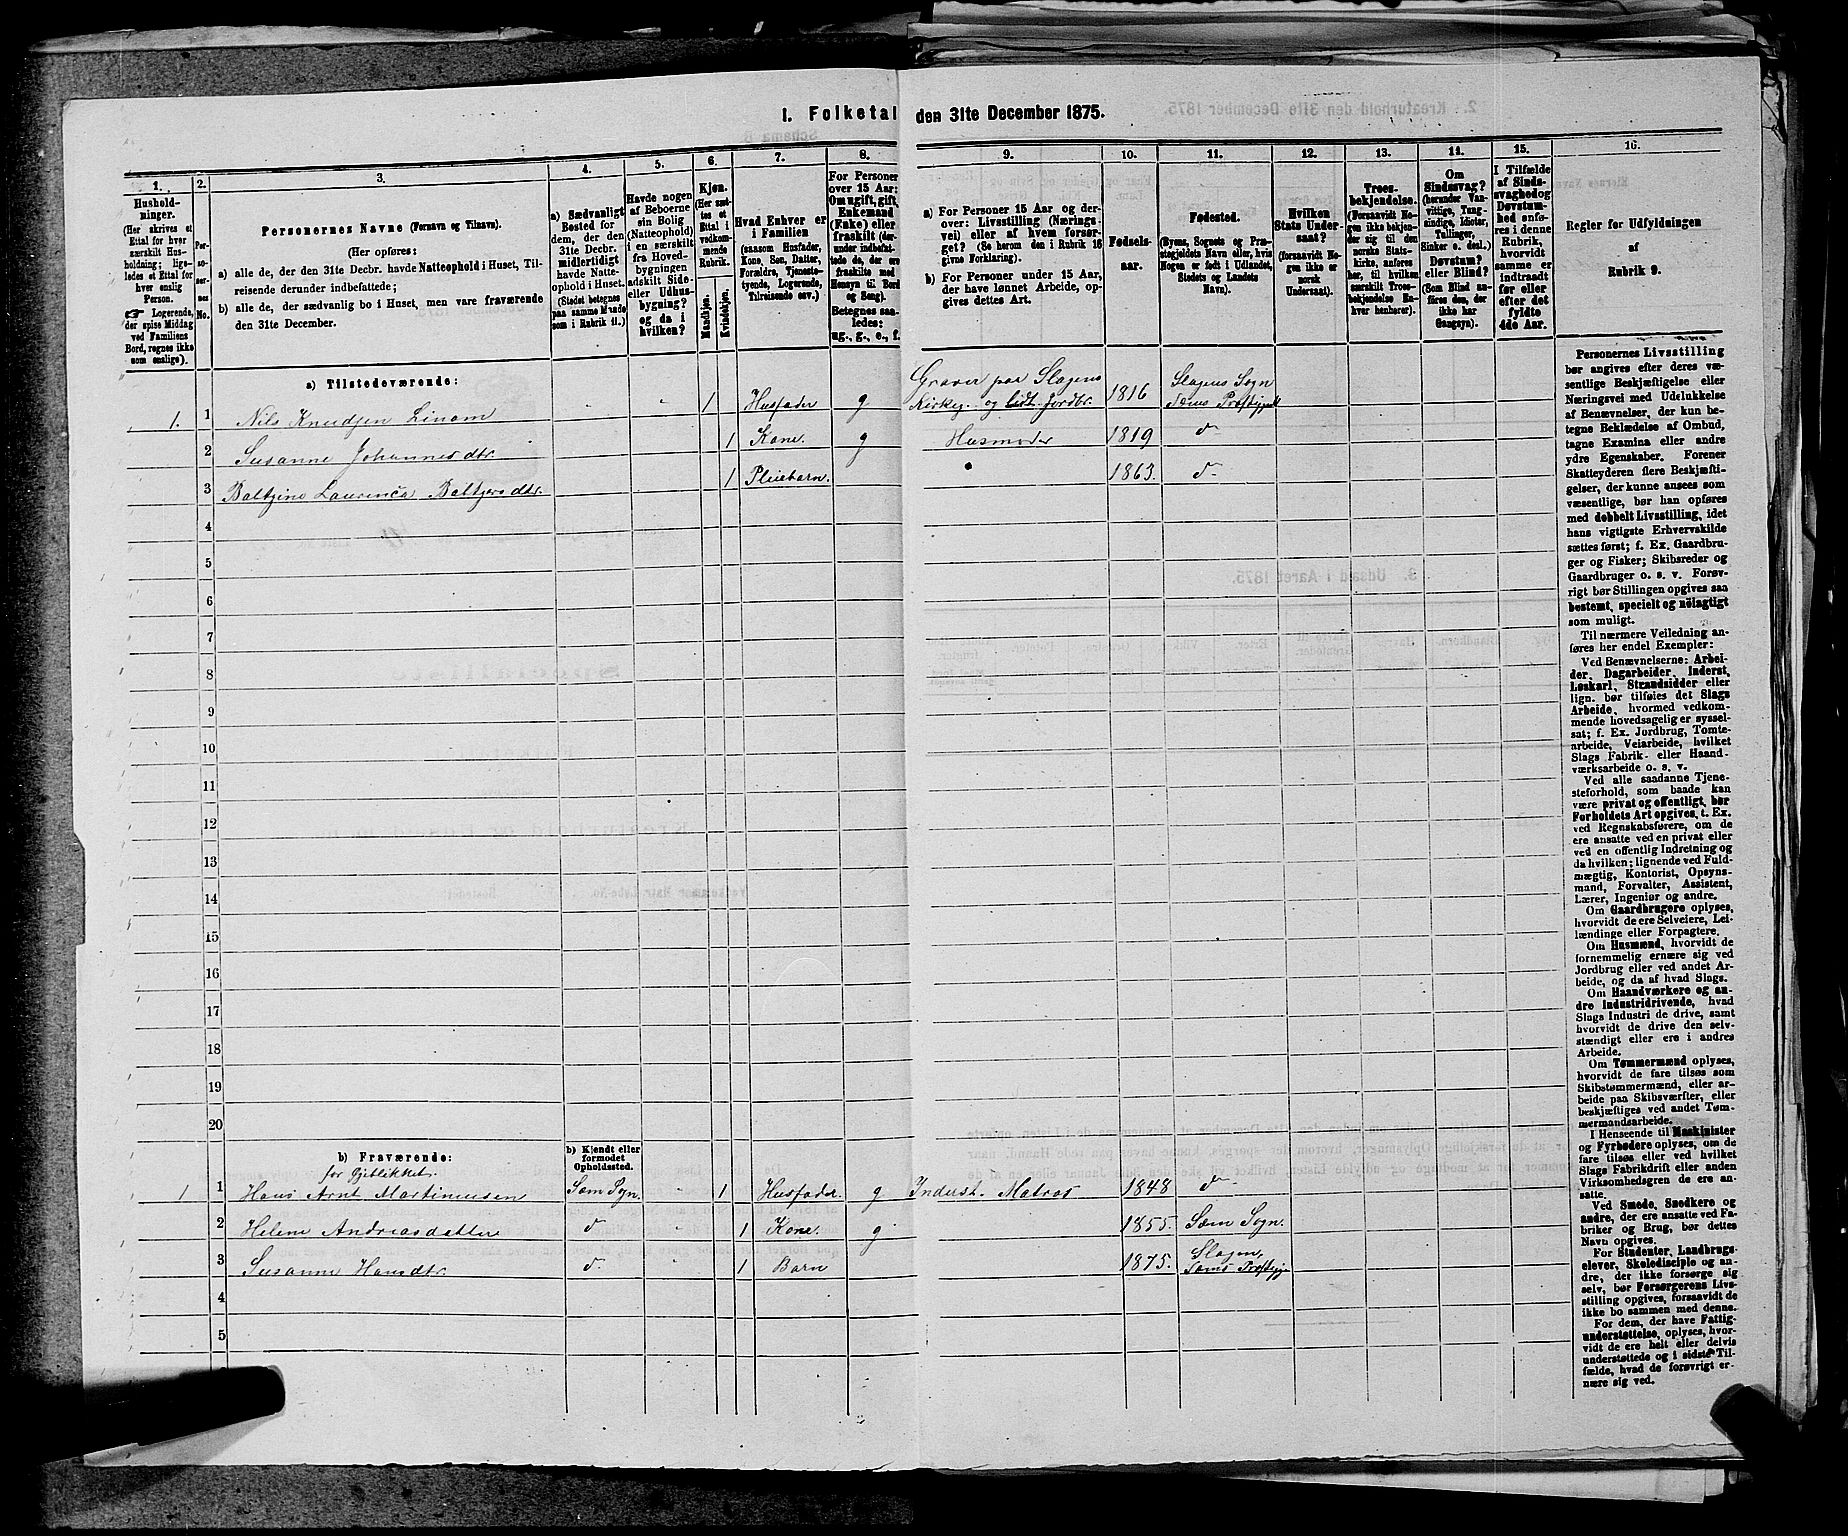 1. Folketal den 31te December 1875.
1. 2. 3. 4. 5. 6. 7. 8. 9. 10. 11. 12. 13. 14. 15. 16.
Hushold-
ninger.
(Her skrives et
Ettal for hver
særskilt Hus-
holdning; lige-
ledes et Ettal for
hver enslig
Person.
☞ Logerende,
der spise Middag
ved Familiens
Bord, regnes ikke
som enslige).
Per-
so-
ner-
nes
No.
Personernes Navne (Fornavn og Tilnavn).
(Her opføres:
a) alle de, der den 31te Decbr. havde Natteophold i Huset, Til-
reisende derunder indbefattede;
b) alle de, der sædvanlig bo i Huset, men vare fraværende
den 31te December.
a) Sædvanligt
Bosted for
dem, der den
31te Decbr.
midlertidigt
havde Natte-
ophold i Huset.
(Stedet betegnes
paa samme Maade
som i Rubrik 11.)
Havde nogen
af Beboerne
sin Bolig
(Natteophold)
i en særskilt
fra Hoved-
bygningen
adskilt Side-
eller Udhus-
bygning?
og da i
hvilken?
Kjøn.
(Her sæt-
tes et
Ettal i
vedkom-
mende
Rubrik.
Mandkjøn.
Kvindekjøn.
Hvad Enhver er
i Familien
(saasom Husfader,
Kone, Søn, Datter,
Forældre, Tjeneste-
tyende, Logerende,
Tilreisende osv.)
For Personer
over 15 Aar:
Om ugift, gift,
Enkemand
(Enke) eller
fraskilt (der-
under indbefat-
tede de, der ere
fraskilte med
Hensyn til Bord
og Seng).
Betegnes saa-
ledes:
ug., g., e., f.
a) For Personer 15 Aar og der-
over: Livsstilling (Nærings-
vei) eller af hvem forsør-
get? (Se herom den i Rubrik 16
givne Forklaring).
b) For Personer under 15 Aar,
der have lønnet Arbeide, op-
gives dettes Art.
Fødsels-
aar.
Fødested.
(Byens, Sognets og Præ-
stegjeldets Navn eller, hvis
Nogen er født i Udlandet,
Stedets og Landets
Navn).
Hvilken
Stats Under-
saat?
(forsaavidt No-
gen ikke er
norsk
Undersaat).
Troes-
bekjendelse.
(Forsaavidt No-
gen ikke bekjen-
der sig til den
norske Stats-
kirke, anføres
her, til hvilken
særskilt Troes-
bekjendelse En-
hver henhører).
Om
Sindssvag?
(herunder Van-
vittige, Tung-
sindige, Idioter,
Tullinger,
Sinker o. desl.)
Døvstum?
eller Blind?
(Som Blind an-
føres den, der
ikke har
Gangsyn).
I Tilfælde
af Sinds-
svaghed og
Døvstum-
hed anfø-
res i denne
Rubrik,
hvorvidt
samme er
indtraadt
før eller
efter det
fyldte
4de Aar.
Regler for Udfyldningen
af
Rubrik 9.
a) Tilstedeværende:
1. 1 Nils Knudsen Linom 1 Husfader g Graver paa Slagens Kirkeg. og lidt Jordbr. 1816 Slagens Sogn Sems Præstegjeld
2 Susanne Johannesdtr. 1 Kone. g Husmoder 1819 d°
3 Baltzine Laurenca Baltzersdtr. 1 Pleiebarn. 1863. d°
4
5
6
7
8
9
10
11
12
13
14
15
16
17
18
19
20
b) Fraværende:
for Øjeblikket.
b) Kjendt eller
formodet
Opholdssted.
1 1 Hans Arnt Martinussen Sæm Sogn. 1 Husfader. g Inderst. Matros 1848 d°
2 Helene Andreasdatter d° 1 Kone. g 1855. Sæm Sogn.
3 Susanne Hansdtr. d° 1 Barn 1875. Slagen, Sems Præstegj
4
5
Personernes Livsstilling
bør angives efter deres væ-
sentlige Beskjæftigelse eller
Næringsvei med Udelukkelse
af Benævnelser, der kun be-
tegne Beklædelse af Ombud,
tagne Examina eller andre
ydre Egenskaber. Forener
Skatteyderen flere Beskjæfti-
gelser, der kunne ansees som
væsentlige, bør han opføres
med dobbelt Livsstilling, idet
hans vigtigste Erhvervskilde
sættes først; f. Ex. Gaardbru-
ger og Fisker; Skibsreder og
Gaardbruger o. s. v. Forøv-
rigt bør Stillingen opgives saa
bestemt, specielt og nøiagtigt
som muligt.
Til nærmere Veiledning an-
føres her endel Exempler:
Ved Benævnelserne: Arbei-
der, Dagarbeider, Inderst,
Løskarl, Strandsidder eller
lign. bør tilføies det Slags
Arbeide, hvormed vedkom-
mende hovedsagelig er syssel-
sat; f. Ex. Jordbrug, Tomte-
arbeide, Veiarbeide, hvilket
Slags Fabrik- eller Haand-
værksarbeide o. s. v.
Ved alle saadanne Tjene-
steforhold, som baade kan
være privat og offentligt, bør
Forholdets Art opgives, t. Ex.
ved Regnskabsførere, om de
ere ansatte ved en privat eller
ved en offentlig Indretning og
da hvilken; lignende ved Fuld-
mægtig, Kontorist, Opsyns-
mand, Forvalter, Assistent,
Lærer, Ingeniør og andre.
Om Gaardbrugere oplyses,
hvorvidt de ere Selveiere, Lei-
lændinge eller Forpagtere.
Om Husmænd, hvorvidt de
fornemmelig ernære sig ved
Jordbrug eller ved andet Ar-
beide, og da af hvad Slags.
Om Haandværkere og an-
dre Industridrivende, hvad
Slags Industri de drive, samt
hvorvidt de drive den selv-
stændigt eller ere i andres
Arbeide.
Om Tømmermænd oplyses,
hvorvidt de fare tilsøs som
Skibstømmermænd, eller ar-
beide paa Skibsværfter, eller
beskjæftiges ved andet Tøm-
mermandsarbeide.
I Henseende til Maskinister
og Fyrbødere oplyses, om de
fare tilsøs eller ved hvilket
Slags Fabrikdrift eller anden
Virksomhedsgren de ere an-
satte.
Ved Smede, Snedkere og
andre, der ere ansatte ved Fa-
briker og Brug, bør dettes
Navn opgives.
For Studenter, Landbrugs-
elever, Skoledisciple og an-
dre, der ikke forsørge sig
selv, bør Forsørgerens Livs-
stilling opgives, forsaavidt de
ikke bo sammen med denne.
For dem, der have Fattig-
understøttelse, oplyses, hvor-
vidt de ere helt eller delvis
understøttede og i sidste Til-
fælde, hvad de forøvrigt er-
nære sig ved.